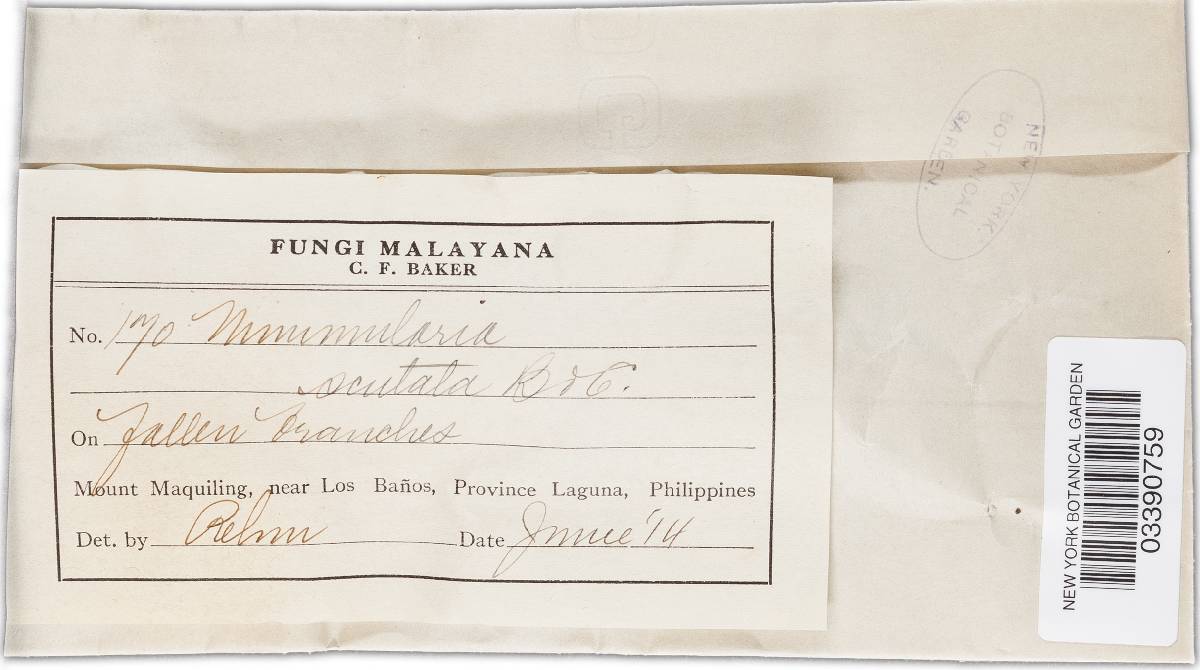 NEW YORK
BOTANICAL
GARDEN.
FUNGI MALAYANA
C. F. BAKER
No. 170 Nummularia
scutata B & C.
On fallen branches
Mount Maquiling, near Los Baños, Province Laguna, Philippines
Det. by Rehm Date June '14
NEW YORK BOTANICAL GARDEN
03390759